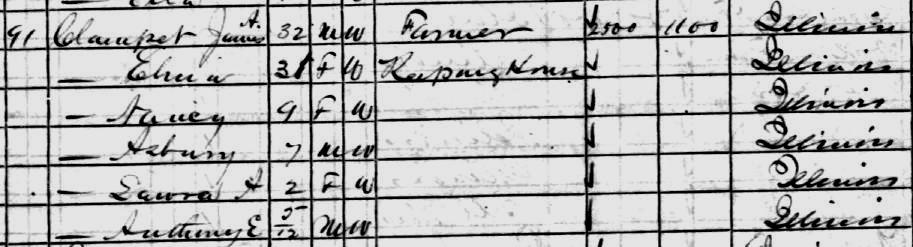 91 Clampet James A. 32 M W Farmer 2500 1100 Illinois
— 31 F W Keeping House Illinois
— Nancy 9 F W Illinois
— Asbury 7 M W Illinois
— Laura A 2 F W Illinois
— Anthony E 5/12 M W Illinois